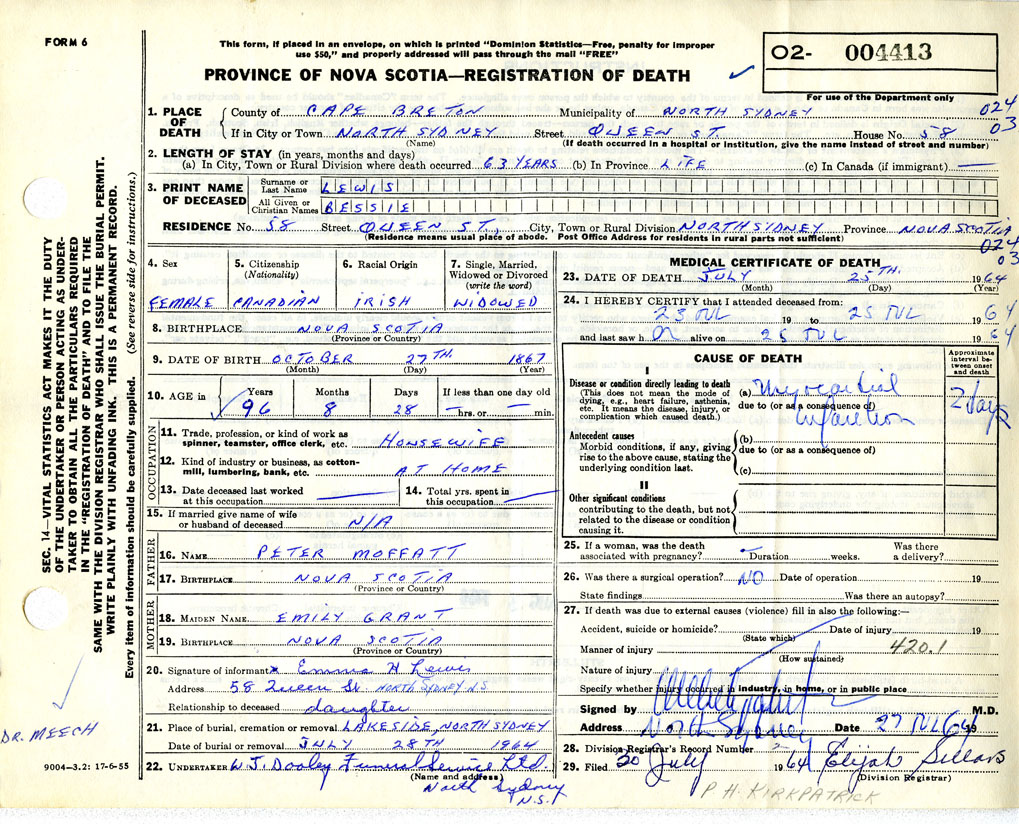 FORM 6
This form, if placed in an envelope, on which is printed "Dominion Statistics—Free, penalty for improper
use $50," and properly addressed will pass through the mail "FREE"
PROVINCE OF NOVA SCOTIA—REGISTRATION OF DEATH
02- 004413
For use of the Department only
024
03
1. PLACE OF DEATH
County of CAPE BRETON Municipality of NORTH SYDNEY
If in City or Town NORTH SYDNEY Street QUEEN ST. House No. 58
(Name) (If death occurred in a hospital or institution, give the name instead of street and number)
2. LENGTH OF STAY (in years, months and days)
(a) In City, Town or Rural Division where death occurred 63 YEARS (b) In Province LIFE (c) In Canada (if immigrant) —
3. PRINT NAME OF DECEASED
Surname or Last Name LEWIS
All Given or Christian Names BESSIE
RESIDENCE No. 58 Street QUEEN ST., City, Town or Rural Division NORTH SYDNEY Province NOVA SCOTIA
(Residence means usual place of abode. Post Office Address for residents in rural parts not sufficient)
024
03
4. Sex
FEMALE
5. Citizenship
(Nationality)
CANADIAN
6. Racial Origin
IRISH
7. Single, Married,
Widowed or Divorced
(write the word)
WIDOWED
8. BIRTHPLACE NOVA SCOTIA
(Province or Country)
9. DATE OF BIRTH OCTOBER 27TH. 1867
(Month) (Day) (Year)
10. AGE in
Years Months Days If less than one day old
96 8 28 — hrs. or — min.
OCCUPATION
11. Trade, profession, or kind of work as
spinner, teamster, office clerk, etc. HOUSEWIFE
12. Kind of industry or business, as cotton-
mill, lumbering, bank, etc. AT HOME
13. Date deceased last worked
at this occupation —
14. Total yrs. spent in
this occupation —
15. If married give name of wife
or husband of deceased N/A
FATHER
16. NAME PETER MOFFATT
17. BIRTHPLACE NOVA SCOTIA
(Province or Country)
MOTHER
18. MAIDEN NAME EMILY GRANT
19. BIRTHPLACE NOVA SCOTIA
(Province or Country)
20. Signature of informant x Emma H Lewis
Address 58 Queen St. NORTH SYDNEY N.S
Relationship to deceased daughter
21. Place of burial, cremation or removal LAKESIDE, NORTH SYDNEY
Date of burial or removal JULY 28TH 1964
22. UNDERTAKER W J. Dooley Funeral Service Ltd.
(Name and address)
North Sydney
N.S.
MEDICAL CERTIFICATE OF DEATH
23. DATE OF DEATH JULY 25TH. 1964
(Month) (Day) (Year)
24. I HEREBY CERTIFY that I attended deceased from:
23 JUL 19 to 25 JUL 1964
and last saw h er alive on 25 JUL 1964
CAUSE OF DEATH
Approximate
interval be-
tween onset
and death
I
Disease or condition directly leading to death
(This does not mean the mode of
dying, e.g., heart failure, asthenia,
etc. It means the disease, injury, or
complication which caused death.)
(a) Myocardial
due to (or as a consequence of)
infarction
2 days
Antecedent causes
Morbid conditions, if any, giving
rise to the above cause, stating the
underlying condition last.
(b)
due to (or as a consequence of)
(c)
II
Other significant conditions
contributing to the death, but not
related to the disease or condition
causing it.
25. If a woman, was the death
associated with pregnancy? — Duration weeks. Was there
a delivery?
26. Was there a surgical operation? NO Date of operation 19
State findings Was there an autopsy?
27. If death was due to external causes (violence) fill in also the following:—
Accident, suicide or homicide? Date of injury 19
(State which)
Manner of injury 420.1
(How sustained)
Nature of injury
Specify whether injury occurred in industry, in home, or in public place
Signed by M.D.
Address North Sydney Date 27 JUL 1964
28. Division Registrar's Record Number
29. Filed 30 July 1964 Elijah Sellars
(Division Registrar)
P. H. KIRKPATRICK
SEC. 14—VITAL STATISTICS ACT MAKES IT THE DUTY
OF THE UNDERTAKER OR PERSON ACTING AS UNDER-
TAKER TO OBTAIN ALL THE PARTICULARS REQUIRED
IN THE "REGISTRATION OF DEATH" AND TO FILE THE
SAME WITH THE DIVISION REGISTRAR WHO SHALL ISSUE THE BURIAL PERMIT.
WRITE PLAINLY WITH UNFADING INK. THIS IS A PERMANENT RECORD.
Every item of information should be carefully supplied. (See reverse side for instructions.)
DR. MEECH
9004-3.2: 17-6-55